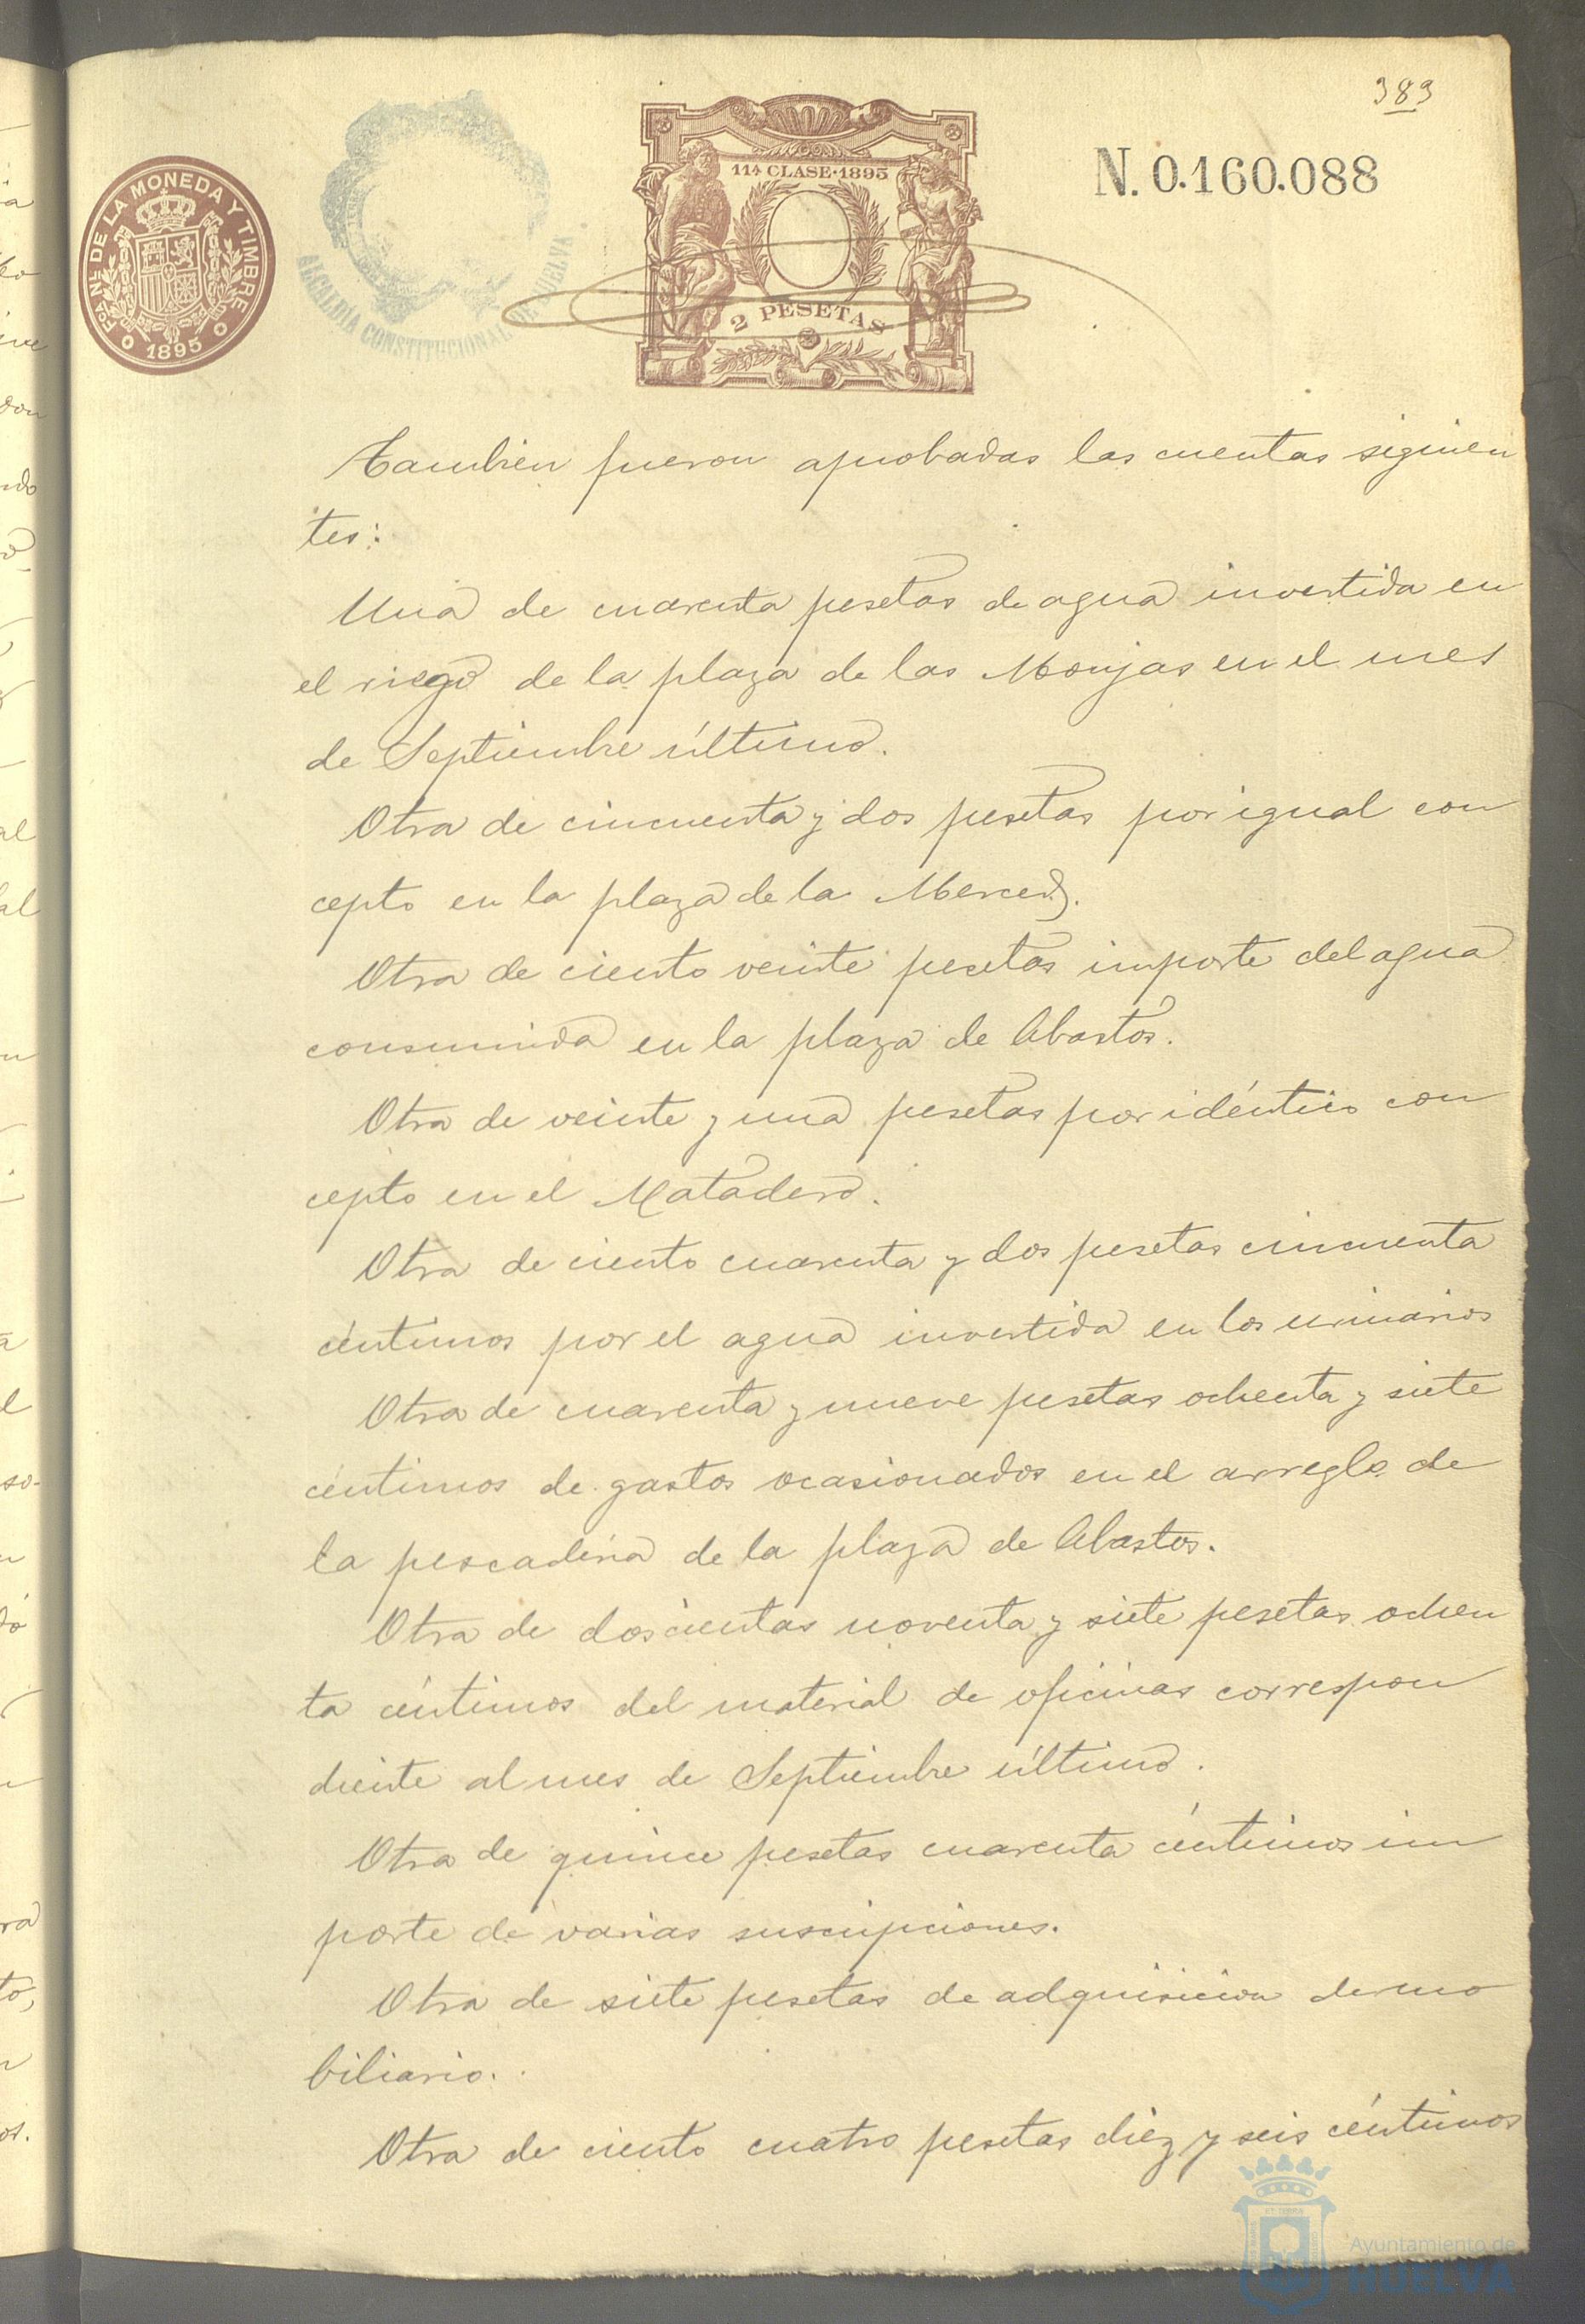 383
N. 0.160.088
FCA. NL. DE LA MONEDA Y TIMBRE
1895
ALCALDÍA CONSTITUCIONAL DE HUELVA.
11ª CLASE·1895
2 PESETAS
Tambien fueron aprobadas las cuentas siguien
tes:
Una de cuarenta pesetas de agua invertida en
el riego de la plaza de las Monjas en el mes
de Septiembre último.
Otra de cincuenta y dos pesetas por igual con
cepto en la plaza de la Merced.
Otra de ciento veinte pesetas importe del agua
consumida en la plaza de Abastos.
Otra de veinte y una pesetas por idéntico con
cepto en el Matadero.
Otra de ciento cuarenta y dos pesetas cincuenta
céntimos por el agua invertida en los urinarios
Otra de cuarenta y nueve pesetas ochenta y siete
céntimos de gastos ocasionados en el arreglo de
la pescaderia de la plaza de Abastos.
Otra de doscientas noventa y siete pesetas ochen
ta céntimos del material de oficinas correspon
diente al mes de Septiembre último.
Otra de quince pesetas cuarenta céntimos im
porte de varias suscripciones.
Otra de siete pesetas de adquisicion de mo
biliario.
Otra de ciento cuatro pesetas diez y seis céntimos
Ayuntamiento de
HUELVA